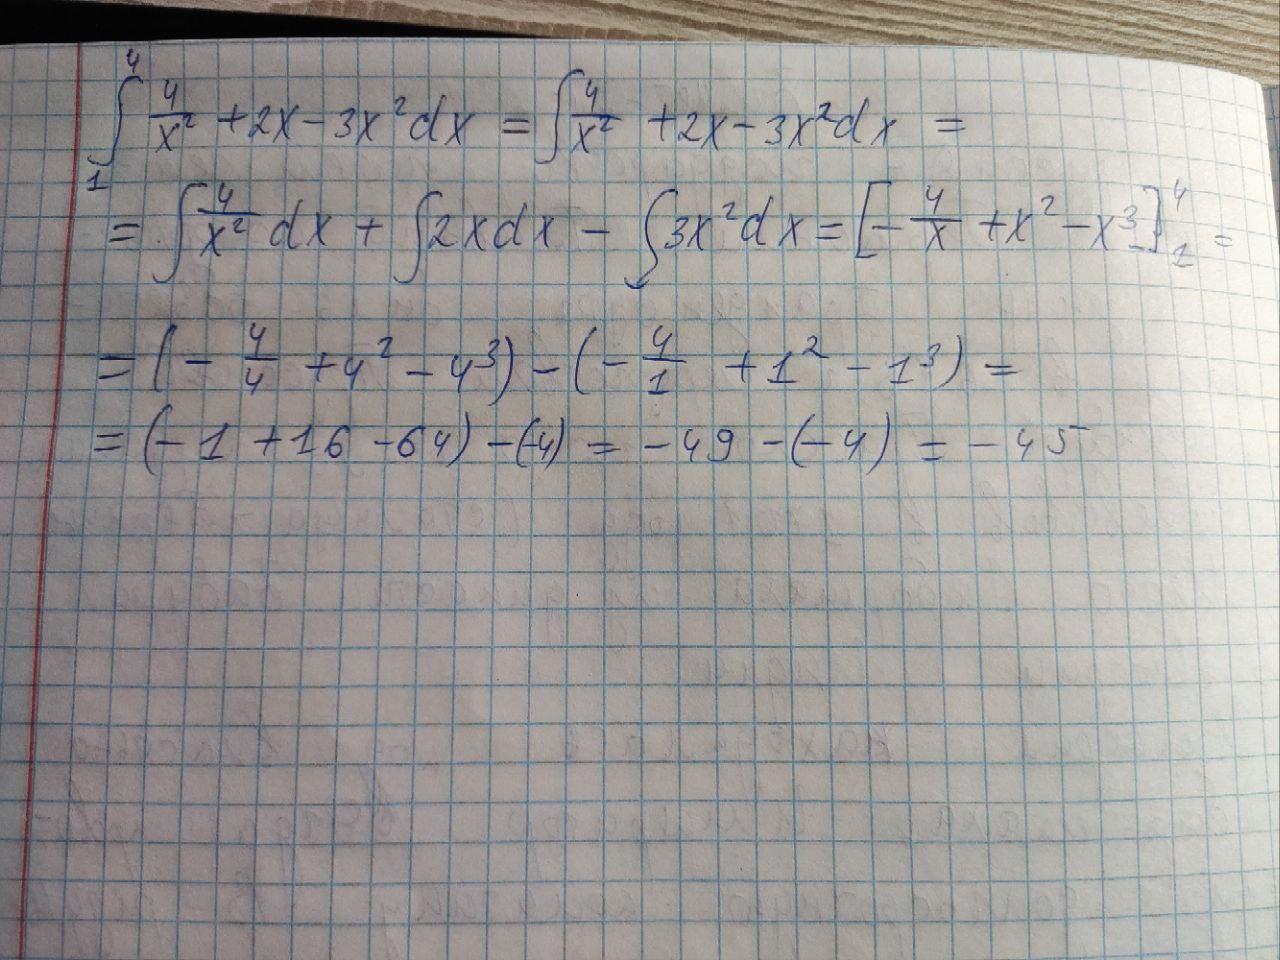 ∫₁⁴ 4/x² + 2x - 3x² dx = ∫ 4/x² + 2x - 3x² dx =
= ∫ 4/x² dx + ∫ 2x dx - ∫ 3x² dx = [- 4/x + x² - x³]₁⁴ =
= (- 4/4 + 4² - 4³) - (- 4/1 + 1² - 1³) =
= (-1 + 16 - 64) - (-4) = -49 - (-4) = -45